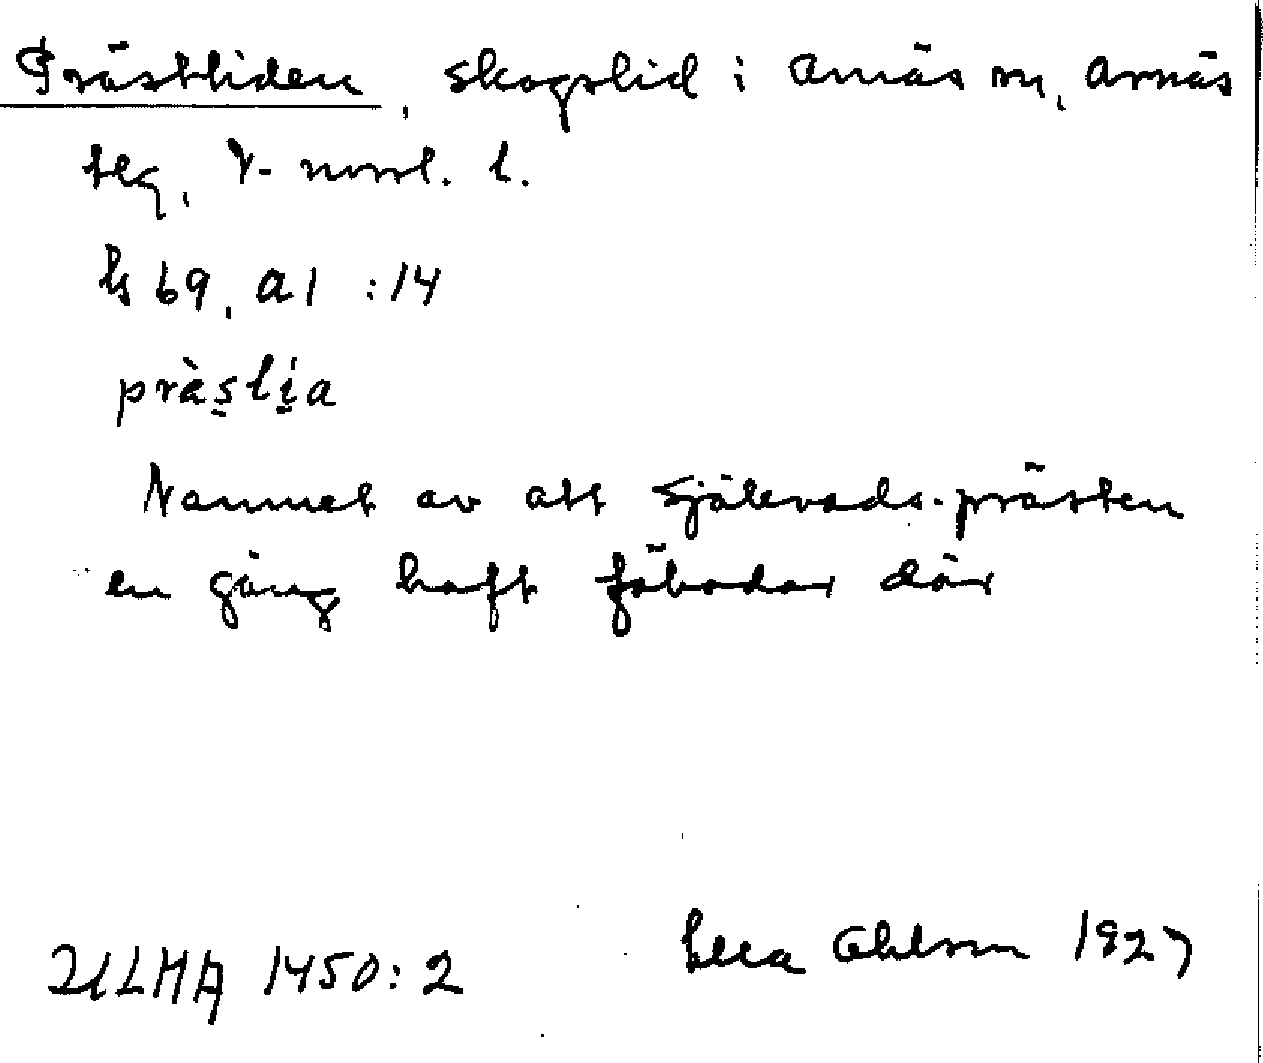 Prästliden, skogslid i Arnäs sn, Arnäs
tlg, V-norrl. l.
ls 69, A1 :14
pràs̱li̱a
Namnet av att Själevads-prästen
en gång haft fäbodar där
ULMA 1450:2 Ella Ohlson 1927